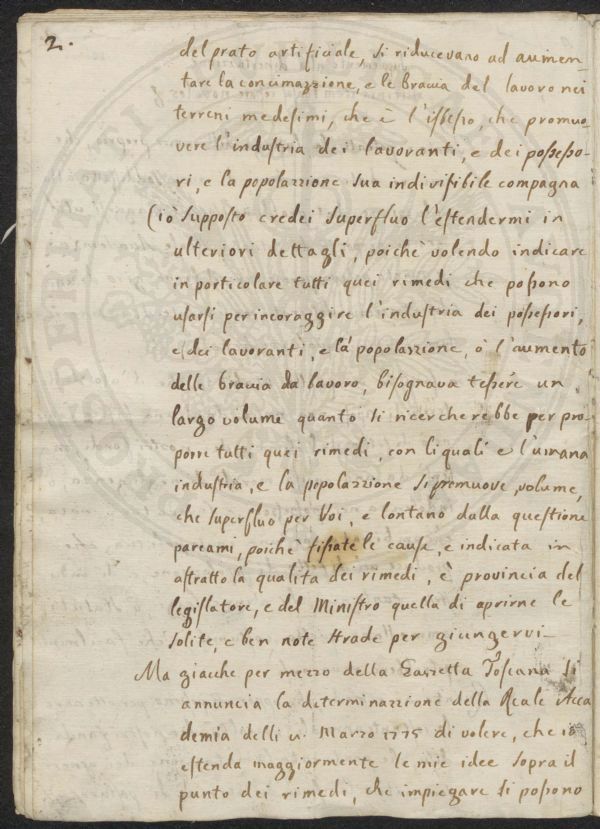 2.
del prato artificiale, si riducevano ad aumen-
tare la concimazzione, e le bracia del lavoro nei
terreni medesimi, che è l'istesso, che promuo-
vere l'industria dei lavoranti, e dei possesso-
ri, e la popolazzione sua indivisibile compagna
(iò supposto credei superfluo l'estendermi in
ulteriori dettagli, poichè volendo indicare
in particolare tutti quei rimedi che possono
usarsi per incoraggire l'industria dei possessori,
e dei lavoranti, e la popolazzione, ò l'aumento
delle bracia da lavoro, bisognava tessere un
largo volume quanto si ricercherebbe per pro-
porre tutti quei rimedi, con li quali e l'umana
industria, e la popolazzione si promuove, volume,
che superfluo per Voi, e lontano dalla questione
pareami, poichè fissate le cause, e indicata in
astratto la qualita dei rimedi, è provincia del
legislatore, e del Ministro quella di aprirne le
solite, e ben note strade per giungervi
Ma giacche per mezzo della Gazzetta Toscana si
annuncia la determinazzione della Reale Acca
demia delli Marzo 1775 di volere, che io
estenda maggiormente le mie idee sopra il
punto dei rimedi, che impiegare si possono